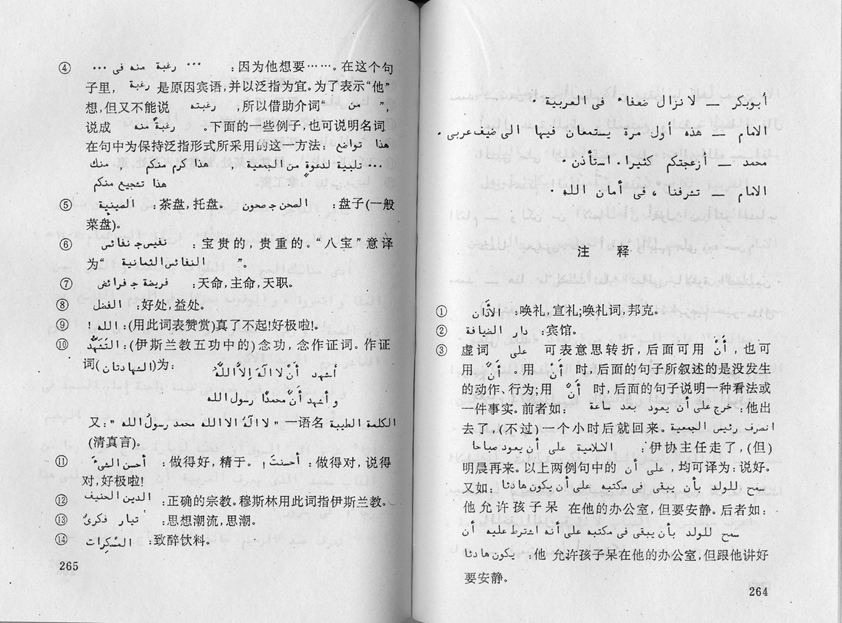 أبوبكر — لا نزال ضعفاء فى العربية .
الامام — هذه أول مرة يستمعان فيها الى ضيف عربى .
محمد — أزعجتكم كثيرا . استأذن .
الامام — تشرفنا ، فى أمان الله .
注 释
① الأذان :唤礼,宣礼;唤礼词,邦克。
② دار الضيافة :宾馆。
③ 虚词 على 可表意思转折,后面可用 أنْ ,也可
用 أنَّ 。用 أنْ 时,后面的句子所叙述的是没发生
的动作、行为;用 أنَّ 时,后面的句子说明一种看法或
一件事实。前者如: خرج على أن يعود بعد ساعة :他出
去了,(不过)一个小时后就回来。 انصرف رئيس الجمعية
الاسلامية على أن يعود صباحا :伊协主任走了,(但)
明晨再来。以上两例句中的 على أن ,均可译为:说好。
又如: سمح للولد بأن يبقى فى مكتبه على أن يكون هادئا :
他允许孩子呆在他的办公室,但要安静。后者如:
سمح للولد بأن يبقى فى مكتبه على أنه اشترط عليه أن
يكون هادئا :他允许孩子呆在他的办公室,但跟他讲好
要安静。
264
④ ... رغبة منه فى ... :因为他想要……。在这个句
子里, رغبة 是原因宾语,并以泛指为宜。为了表示“他”
想,但又不能说 رغبته ,所以借助介词“ من ”,
说成 رغبة منه 。下面的一些例子,也可说明名词
在句中为保持泛指形式所采用的这一方法: هذا تواضع
منك ، هذا كرم منكم ، تلبية لدعوة من الجمعية ...
هذا تشجيع منكم
⑤ الصينية :茶盘,托盘。 الصحن ج صحون :盘子(一般
菜盘)。
⑥ نفيس ج نفائس :宝贵的,贵重的。“八宝”意译
为“ النفائس الثمانية ”。
⑦ فريضة ج فرائض :天命,主命,天职。
⑧ الفضل :好处,益处。
⑨ الله ! :(用此词表赞赏)真了不起!好极啦!
⑩ التَّشَهُّد :(伊斯兰教五功中的)念功,念作证词。作证
词(الشهادتان)为: أشهد أنْ لا الٰه الاَّ اللّٰه
و أشهد أنَّ محمدًا رسول الله
又: الكلمة الطيبة “ لا اله الا الله محمد رسول الله ” 一语名
(清真言)。
⑪ أحسن الشىءَ :做得好,精于。 أحسنتَ ! :做得对,说得
对,好极啦!
⑫ الدين الحنيف :正确的宗教。穆斯林用此词指伊斯兰教。
⑬ تيار فكرىّ :思想潮流,思潮。
⑭ المسكرات :致醉饮料。
265